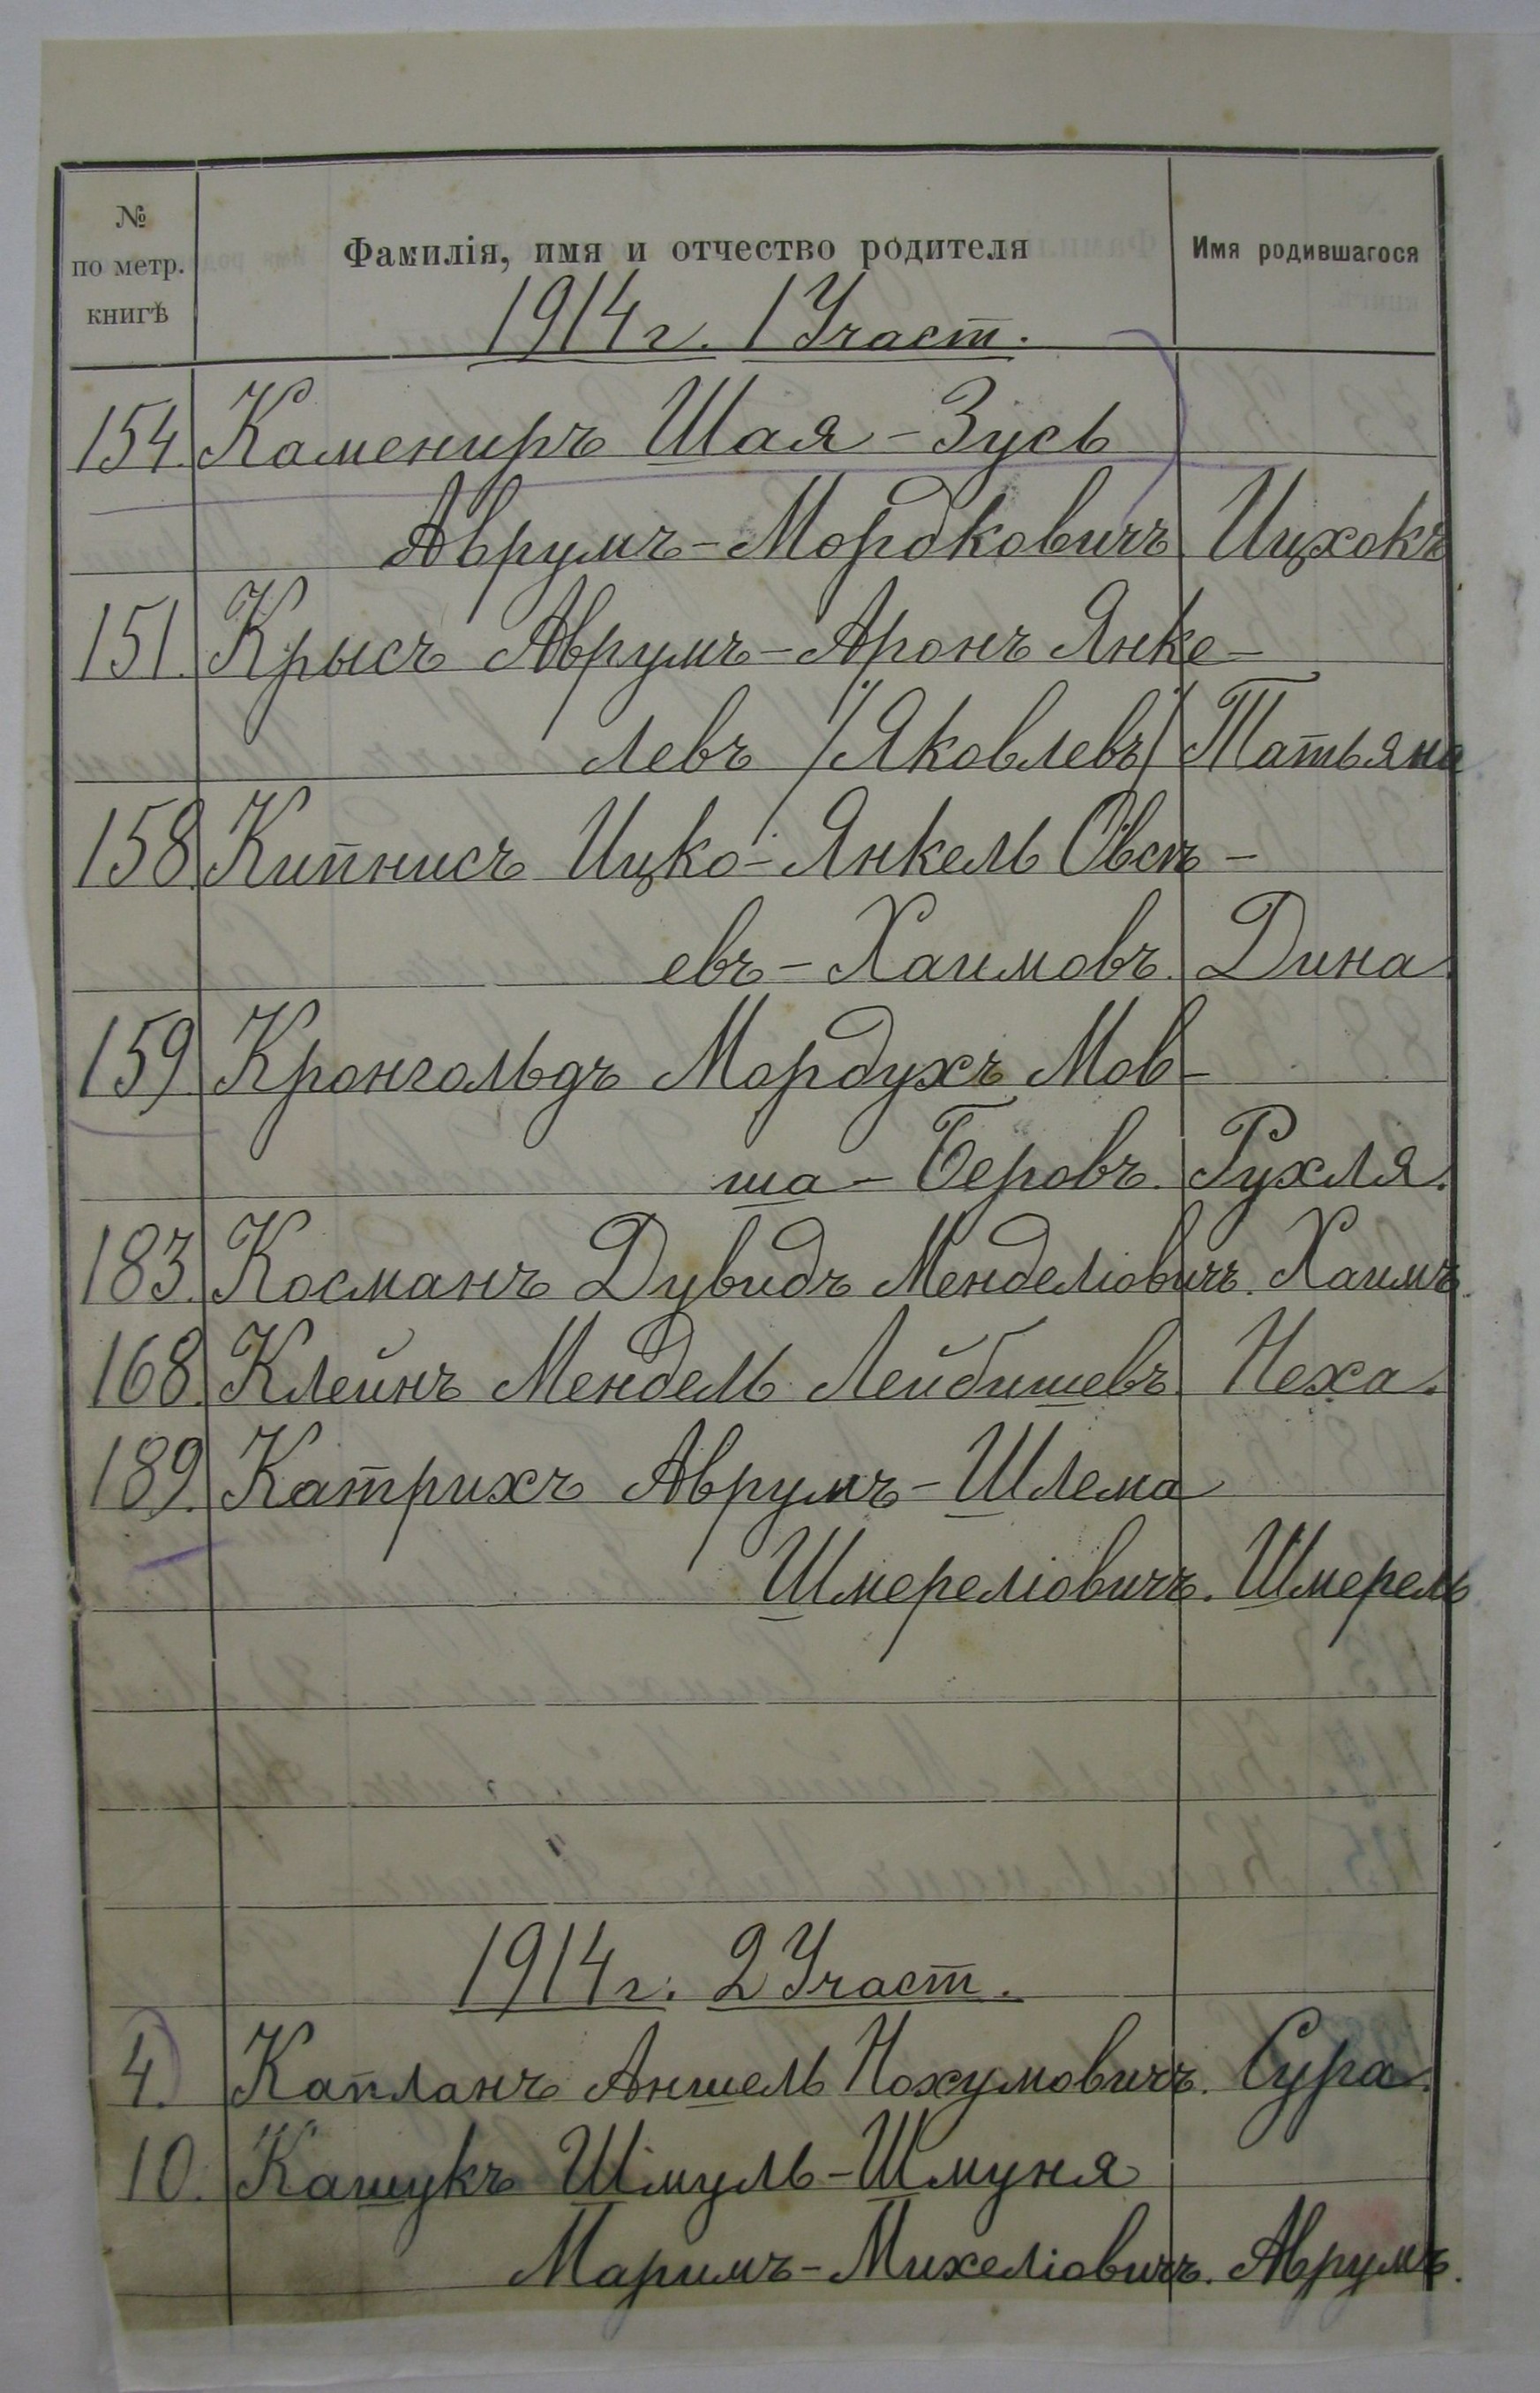 №
по метр.
книгѣ
Фамилія, имя и отчество родителя
Имя родившагося
1914 г. 1 Участ.
154. Камениръ Шая-Зусь
Аврумъ-Мордковичъ Ицхокъ
151. Крысъ Аврумъ-Аронъ Янке-
левъ /Яковлевъ/ Татьяна
158. Кипнисъ Ицко-Янкель Овсѣ-
евъ-Хаимовъ. Дина.
159. Кронгольдъ Мордухъ Мов-
ша-Беровъ. Рухля.
183. Косманъ Дувидъ Менделіовичъ. Хаимъ.
168. Клейнъ Мендель Лейбишевъ. Неха.
189. Катрихъ Аврумъ-Шлема
Шмереліовичъ. Шмерель
1914 г. 2 Участ.
4. Капланъ Аншель Нохумовичъ. Сура.
10. Кашукъ Шмуль-Шмуня
Маримъ-Михеліовичъ. Аврумъ.